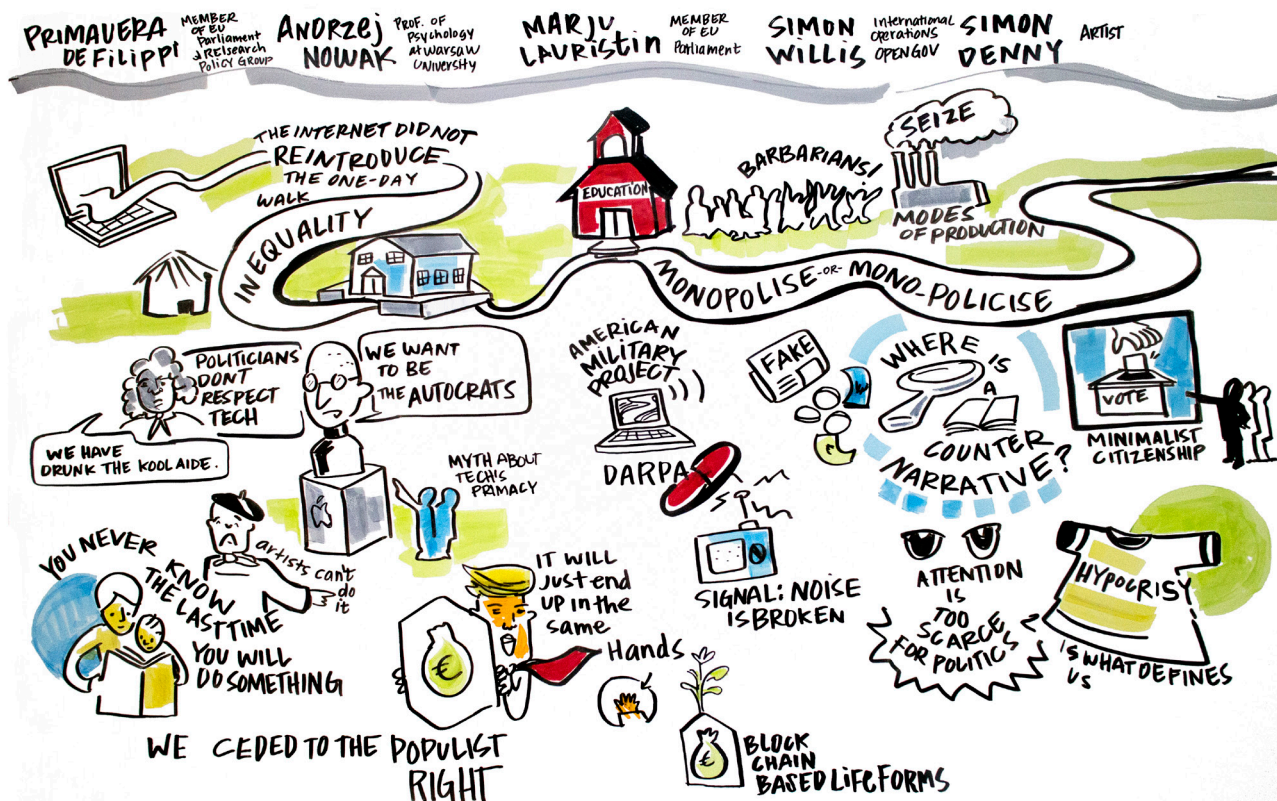 PRIMAVERA
DE FILIPPI
MEMBER
OF EU
Parliament
& REsearch
Policy GROUP
ANDRZEJ
NOWAK
PROF. OF
Psychology
At WARSAW
UNIVERSITY
MARJU
LAURISTIN
MEMBER
OF EU
Parliament
SIMON
WILLIS
International
OPERATIONS
OPENGOV
SIMON
DENNY
ARTIST
THE INTERNET DID NOT
REINTRODUCE
THE ONE-DAY
WALK
INEQUALITY
EDUCATION
BARBARIANS!
SEIZE
MODES
OF PRODUCTION
MONOPOLISE -OR- MONO-POLICISE
POLITICIANS
DONT
RESPECT
TECH
WE HAVE
DRUNK THE KOOL AIDE.
WE WANT
TO BE
THE AUTOCRATS
MYTH ABOUT
TECH'S
PRIMACY
AMERICAN
MILITARY
PROJECT
DARPA
FAKE
WHERE IS
A
COUNTER
NARRATIVE?
VOTE
MINIMALIST
CITIZENSHIP
YOU NEVER
KNOW
THE LAST TIME
YOU WILL
DO SOMETHING
artists can't
do
it
IT WILL
Just end
UP in the
same
Hands
€
SIGNAL: NOISE
IS BROKEN
ATTENTION
IS
TOO
SCARCE
FOR POLITICS
HYPOCRISY
IS WHAT DEFINES
US
WE CEDED TO THE POPULIST
RIGHT
€
BLOCK
CHAIN
BASED LIFE FORMS